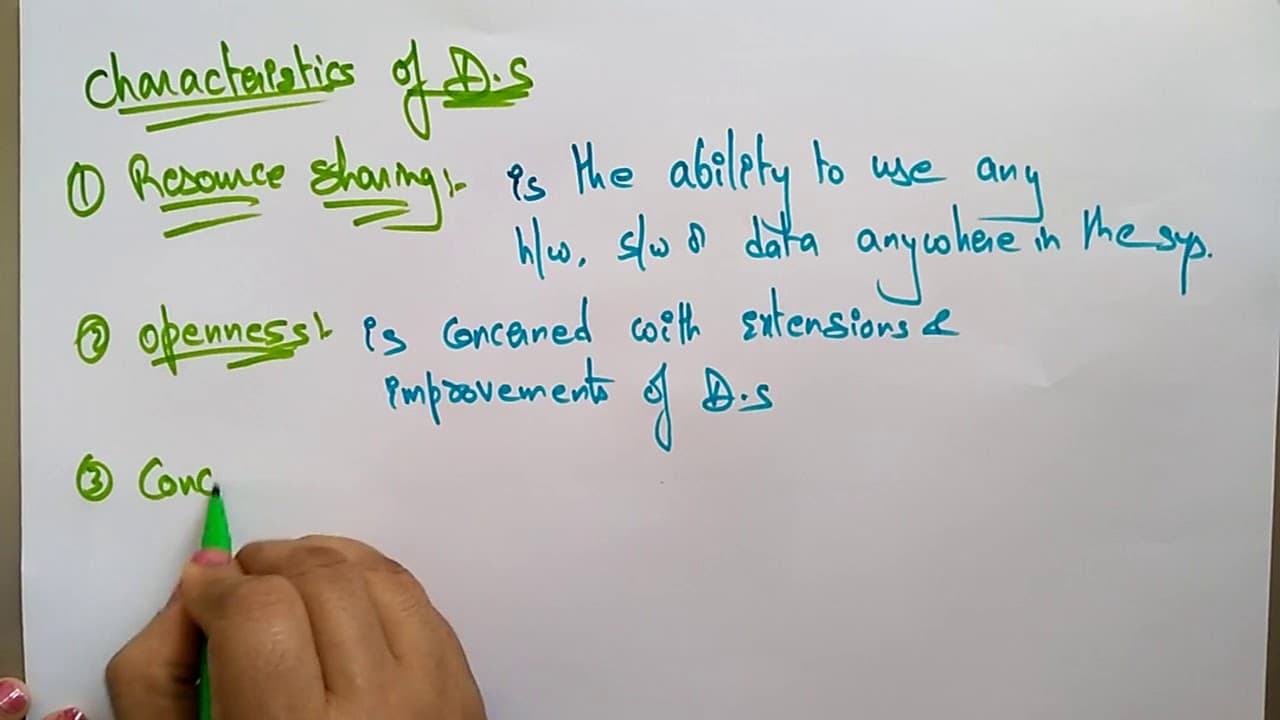 Characteristics of D.S
① Resource sharing:- is the ability to use any
h/w, s/w or data anywhere in the sys.
② openness:- is concerned with extensions &
improvements of D.S
③ Conc